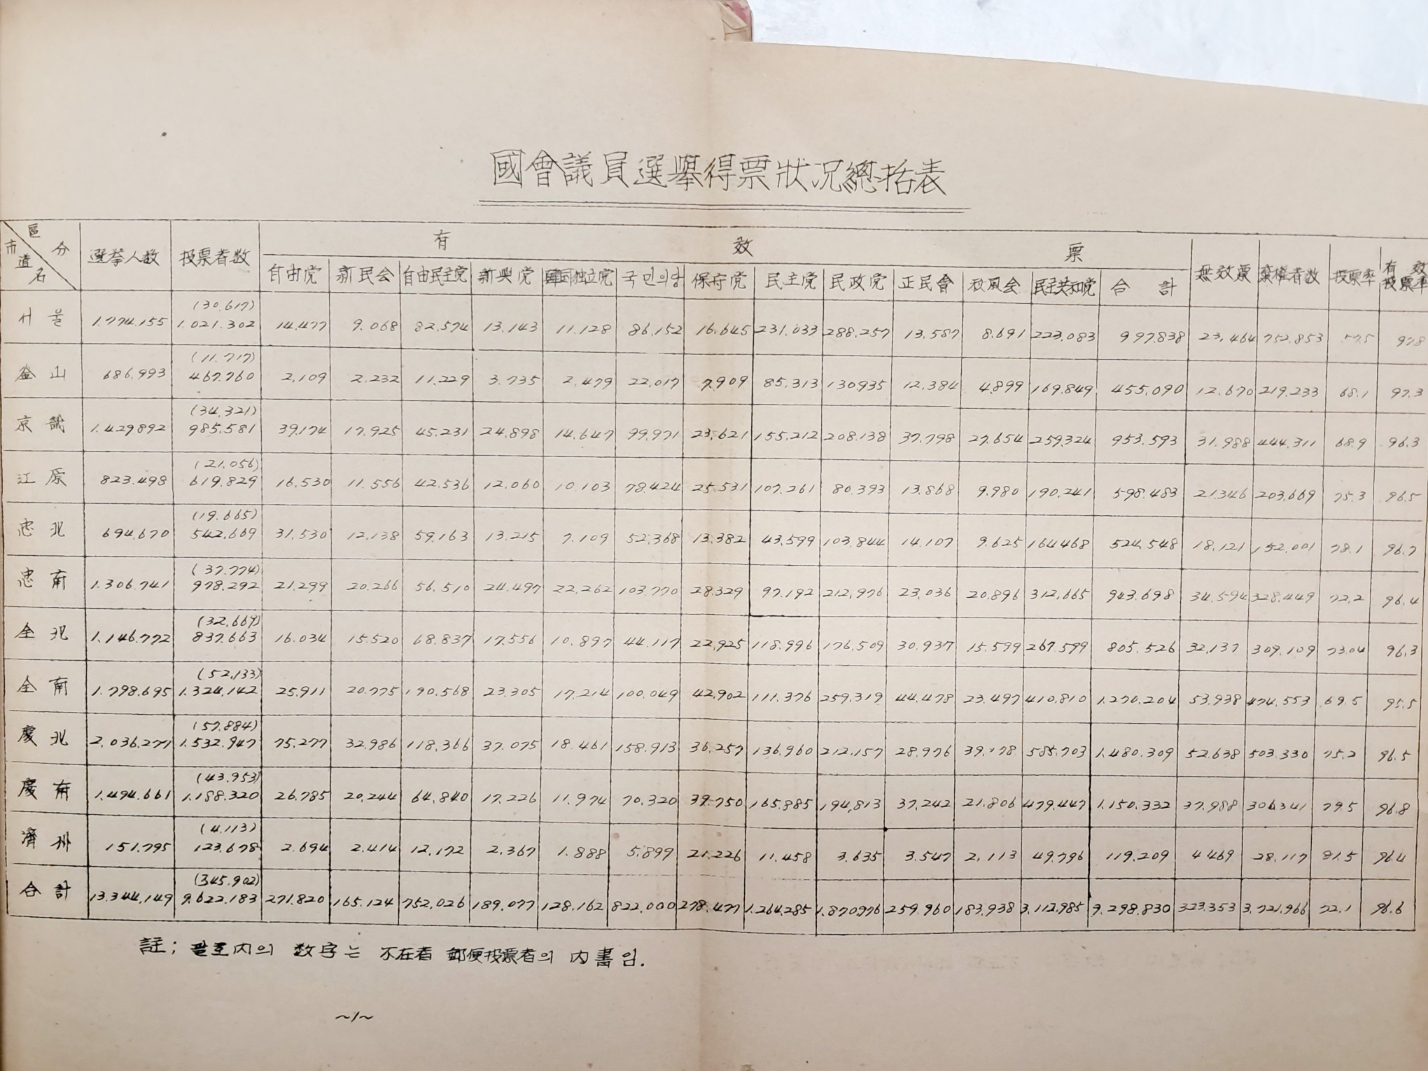 國會議員選擧得票狀况總括表
區分 市道名 選挙人数 投票者数 有效票 無效票 棄権者数 投票率 有效投票率
自由党 新民会 自由民主党 新興党 韓国独立党 국민의당 保守党 民主党 民政党 正民會 秋風会 民主共和党 合計
서울 1.774.155 (30.617) 1.021.302 14.477 9.068 82.574 13.143 11.128 86.152 16.645 231.033 288.257 13.587 8.691 223.083 997.838 23.464 752.853 57.5 97.8
釜山 686.993 (11.717) 467.760 2.109 2.232 11.229 3.735 2.479 22.017 7.909 85.313 130935 12.384 4.899 169.849 455.090 12.670 219.233 68.1 97.3
京畿 1.429.892 (34.321) 985.581 39.174 17.925 45.231 24.898 14.647 99.971 23.621 155.212 208.138 37.798 27.654 259324 953.593 31.988 444.311 68.9 96.3
江原 823.498 (21.056) 619.829 16.530 11.556 42.536 12.060 10103 78.424 25.531 107.261 80.393 13.868 9.980 190.241 598.483 21346 203.669 75.3 96.5
忠北 694.670 (19.665) 542.669 31.530 12.138 59.163 13.215 7.109 52.368 13.382 43.599 103.844 14.107 9.625 164468 524.548 18.121 152.001 78.1 96.7
忠南 1.306.741 (37.774) 978.292 21.299 20.266 56.510 24.497 22.262 103.770 28329 97.192 212.976 23.036 20.896 312.665 943.698 34.594 328.449 72.2 96.4
全北 1.146.772 (32.667) 837.663 16.034 15.520 68.837 17.556 10.897 44.117 22.925 118.996 176.509 30.937 15.599 267.599 805.526 32.137 309.109 73.04 96.3
全南 1.798.695 (52.133) 1.324.142 25.911 20.775 190.568 23.305 17.214 100.049 42.902 111.376 259.319 44.478 23.497 410.810 1.270.204 53.938 474.553 69.5 95.5
慶北 2.036.277 (57.884) 1.532.947 75.277 32.986 118.366 37.075 18.461 158.913 36.257 136.960 212.157 28.976 39.178 585.703 1.480.309 52.638 503.330 75.2 96.5
慶南 1.494.661 (43.953) 1.188.320 26.785 20.244 64.840 17.226 11.974 70.320 39.750 165.885 194.813 37.242 21.806 479.447 1.150.332 37.988 306341 79.5 96.8
濟州 151.795 (4.113) 123.678 2.694 2.414 12.172 2.367 1.888 5.899 21.226 11.458 3.635 3.547 2.113 49.796 119.209 4469 28.117 81.5 96.4
合計 13.344.149 (345.902) 9.622.183 271.820 165.124 752.026 189.077 128.162 822.000 278.477 1.264.285 1.870.976 259.960 183.938 3.112.985 9.298.830 323.353 3.721.966 72.1 96.6
註; 괄호内의 数字는 不在者 郵便投票者의 内書임.
~1~